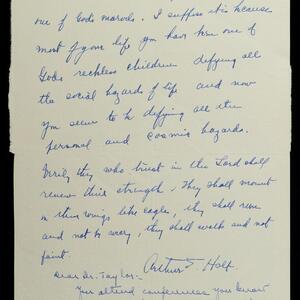 one of God's marvels. I suppose it is because
most of your life you have been one of
God's reckless children defying all
the social hazards of life and now
you seem to be defying all the
personal and cosmic hazards.
Verily they who trust in the Lord shall
renew their strength. They shall mount
on their wings like eagles, they shall run
and not be weary, they shall walk and not
faint
Arthur E. Holt
Dear Dr. Taylor-
You attend conferences you know